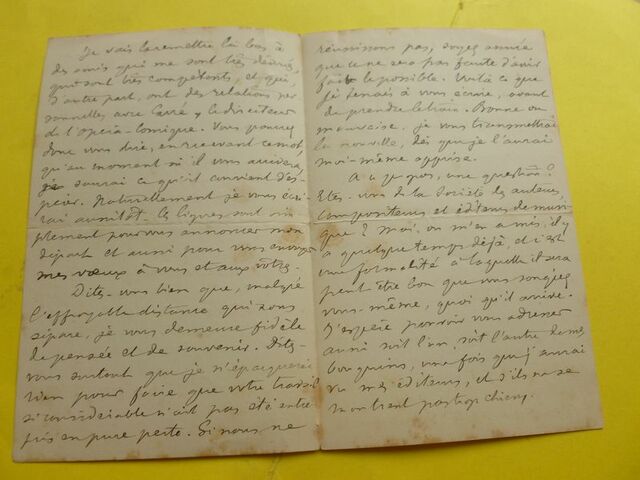 Je vais la remettre là bas à
des amis qui me sont très dévoués,
qui sont très compétents, et qui,
d'autre part, ont des relations per
sonnelles avec Carré, le directeur
de l'Opéra-Comique. Vous pouvez
donc vous dire, en recevant ce mot
qu'au moment où il vous arrivera,
je saurai ce qu'il convient d'es-
pérer. Naturellement je vous écri
rai aussitôt. Ces lignes sont sim
plement pour vous annoncer mon
départ et aussi pour vous envoyer
mes vœux à vous et aux vôtres.
Dites-vous bien que, malgré
l'effroyable distance qui nous
sépare, je vous demeure fidèle
de pensée et de souvenir. Dites-
vous surtout que je n'épargnerai
rien pour faire que votre travail
si considérable n'ait pas été entre
pris en pure perte. Si nous ne
réussissons pas, soyez
que ce ne sera pas faute d'avoir
fait le possible. Voilà ce que
je tenais à vous écrire, avant
de prendre le train. Bonne ou
mauvaise, je vous transmettrai
la nouvelle, dès que je l'aurai
moi-même apprise.
A ce propos, une question?
Etes-vous de la Société des auteurs,
compositeurs et éditeurs de musi
que? Moi, on m'en a mis, il y
a quelque temps déjà, et c'est
une formalité à laquelle il sera
peut être bon que vous songiez
vous-même, quoi qu'il arrive.
J'espère pouvoir vous adresser
aussi soit l'un, soit l'autre de mes
bouquins, une fois que j'aurai
vu mes éditeurs, et s'ils ne se
montrent pas trop chiens.